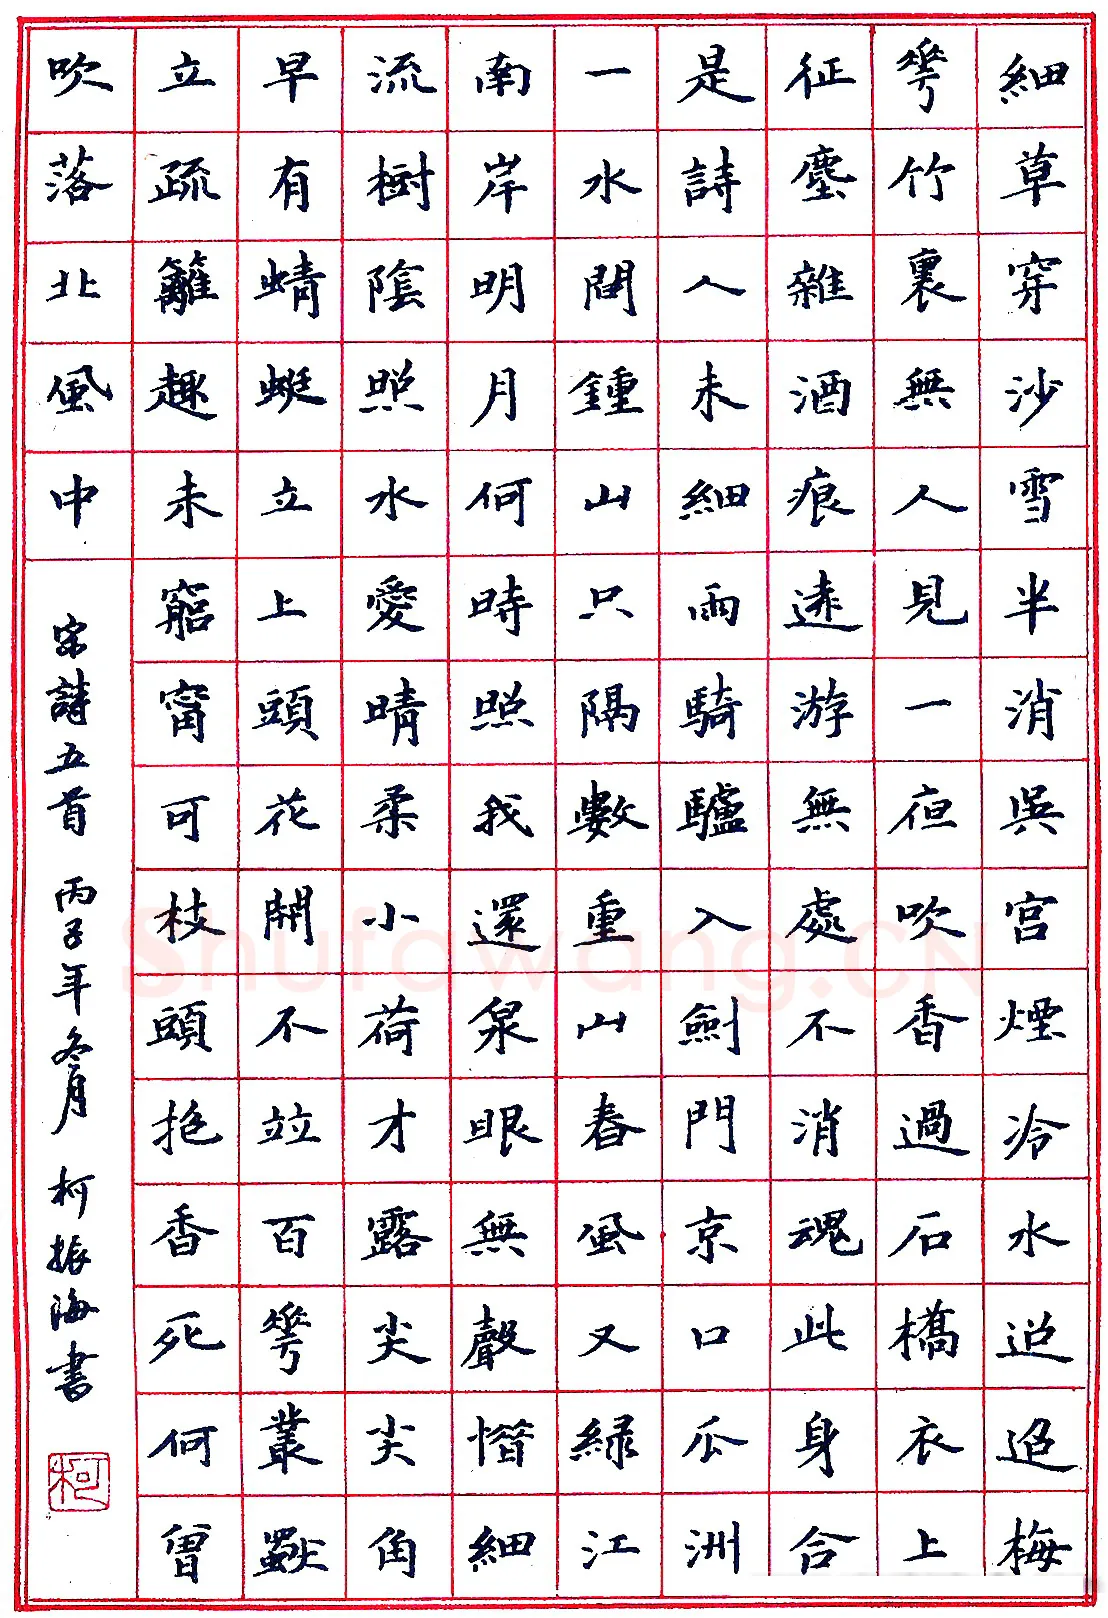 細草穿沙雪半消吳宮煙冷水迢迢梅
𠌶竹裏無人見一夜吹香過石橋衣上
征塵雜酒痕遠游無處不消魂此身合
是詩人未細雨騎驢入劍門京口瓜洲
一水間鍾山只隔數重山春風又緑江
南岸明月何時照我還泉眼無聲惜細
流樹陰照水愛晴柔小荷才露尖尖角
早有蜻蜓立上頭花開不竝百𠌶叢獨
立疏籬趣未窮甯可枝頭抱香死何曾
吹落北風中
宋詩五首 丙子年冬月 柯振海書
柯
Shufawang.CN